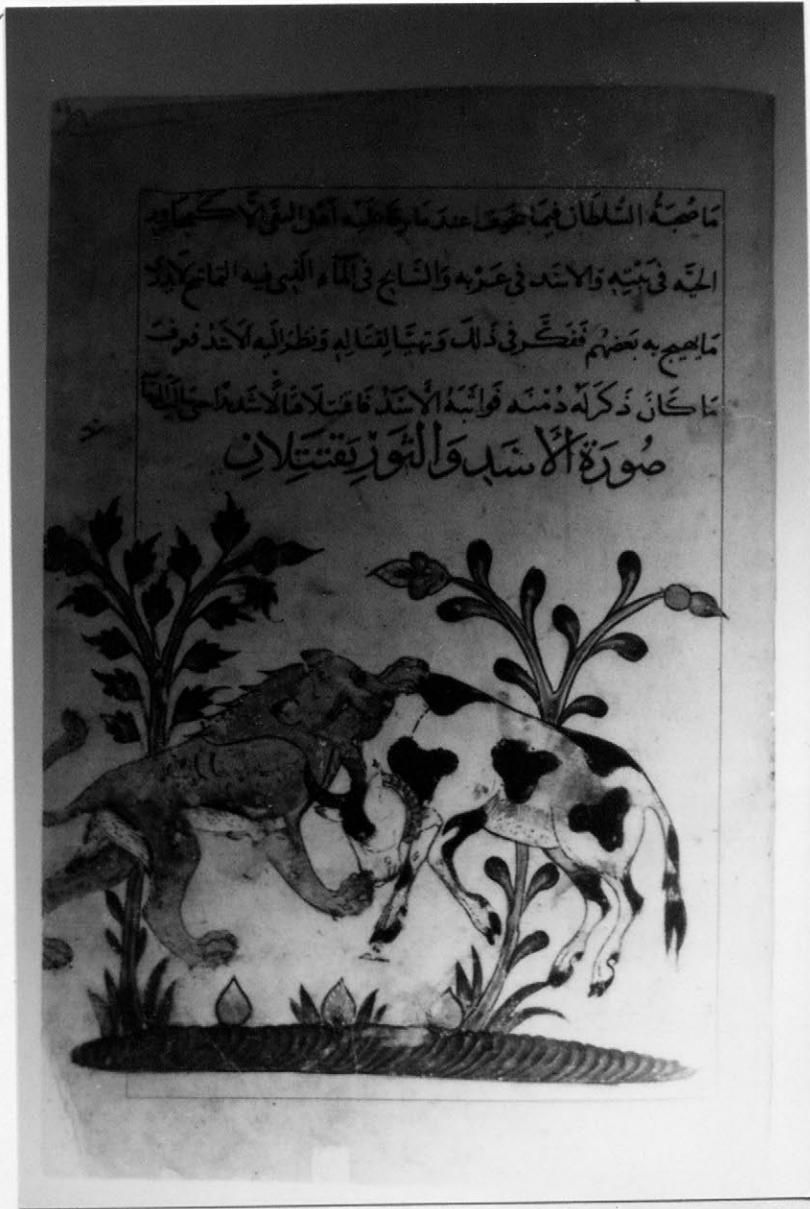 مَا صُحْبَةُ السُّلْطَانِ فِيمَا عند مَا عَلَيْهِ أهْل البغي الَّا كَمجاور
الحيّه فى بَيْتِهِ وَالاسَد فى عَرينه وَالسَّابح فى المَاءِ الَّذِى فيه التماسيح لا
مَا يهيج به بَعضهُم فَفَكَّر فى ذلكَ وَتهيَّا لِقتَالِهِ وَنظر اليه الاسَدُ فعرف
مَا كَانَ ذَكَرَ لَهُ دُمْنه فَوَاثَبَهُ الأَسَدُ فَاقتتلا قتالاً شديداً حتى
صُورَة الأَسَدِ وَالثَوْرِ يَقتَتِلانِ